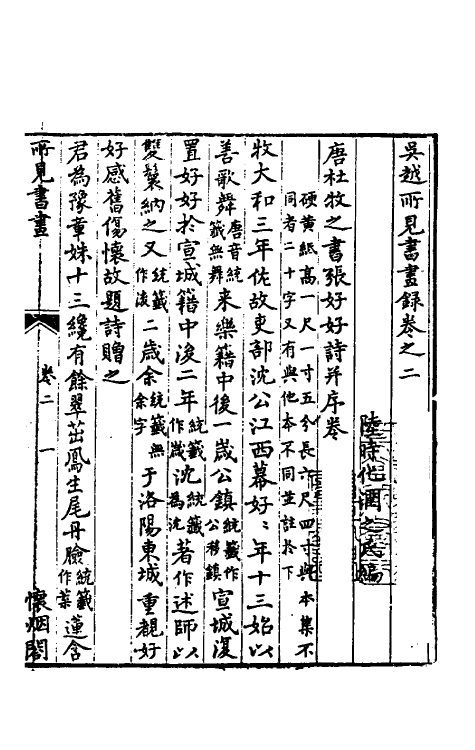 吳越所見書畫錄卷之二
陸時化潤之氏編
唐杜牧之書張好好詩并序卷
硬黃紙高一尺一寸五分長六尺四寸與本集不
同者二十字又有與他本不同並註於下
牧大和三年佐故吏部沈公江西幕好〻年十三始以
善歌舞唐音統籤無舞來樂籍中後一歲公鎮統籤作公移鎮宣城復
置好好於宣城籍中後二年統籤作歲沈統籤為沈著作述師以
雙鬟納之又統籤作後二歲余統籤無余字于洛陽東城重覩好
好感舊傷懷故題詩贈之
君為豫章姝十三纔有餘翠茁鳳生尾丹臉統籤作葉蓮含
所見書畫
卷二
一
懷烟閣